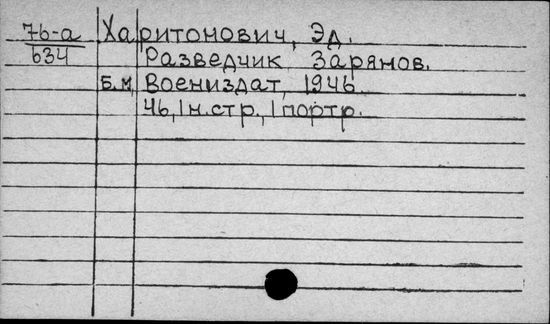 76-а Харитонович, Эд.
634 Разведчик Зарянов.
Б.М, Воениздат, 1946
46, 1 н.стр., 1 портр.